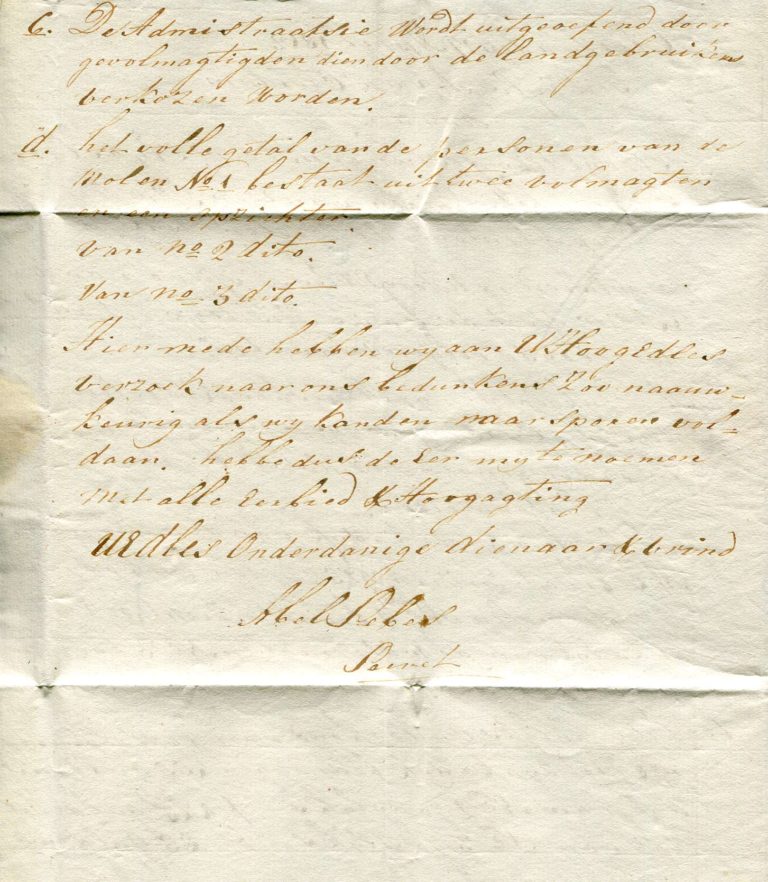 C. De Admistraatsie Wordt uitgeoefend door
gevolmagtigden dien door de landgebruikers
verkozen Worden.
d. het volle getal van de personen van de
Molen No 1 bestaat uit twee volmagten
en een opzichter.
van no 2 dito.
Van no 3 dito.
Hier mede hebben wy aan UHoogEdles
verzoek naar ons bedunkens Zoo naauw-
keurig als wy kanden naarsporen vol-
daan. hebbe dus de Eer my te noemen
Met alle Eerbied & Hoogagting
UEdles Onderdanige dienaar & vrind
Abel